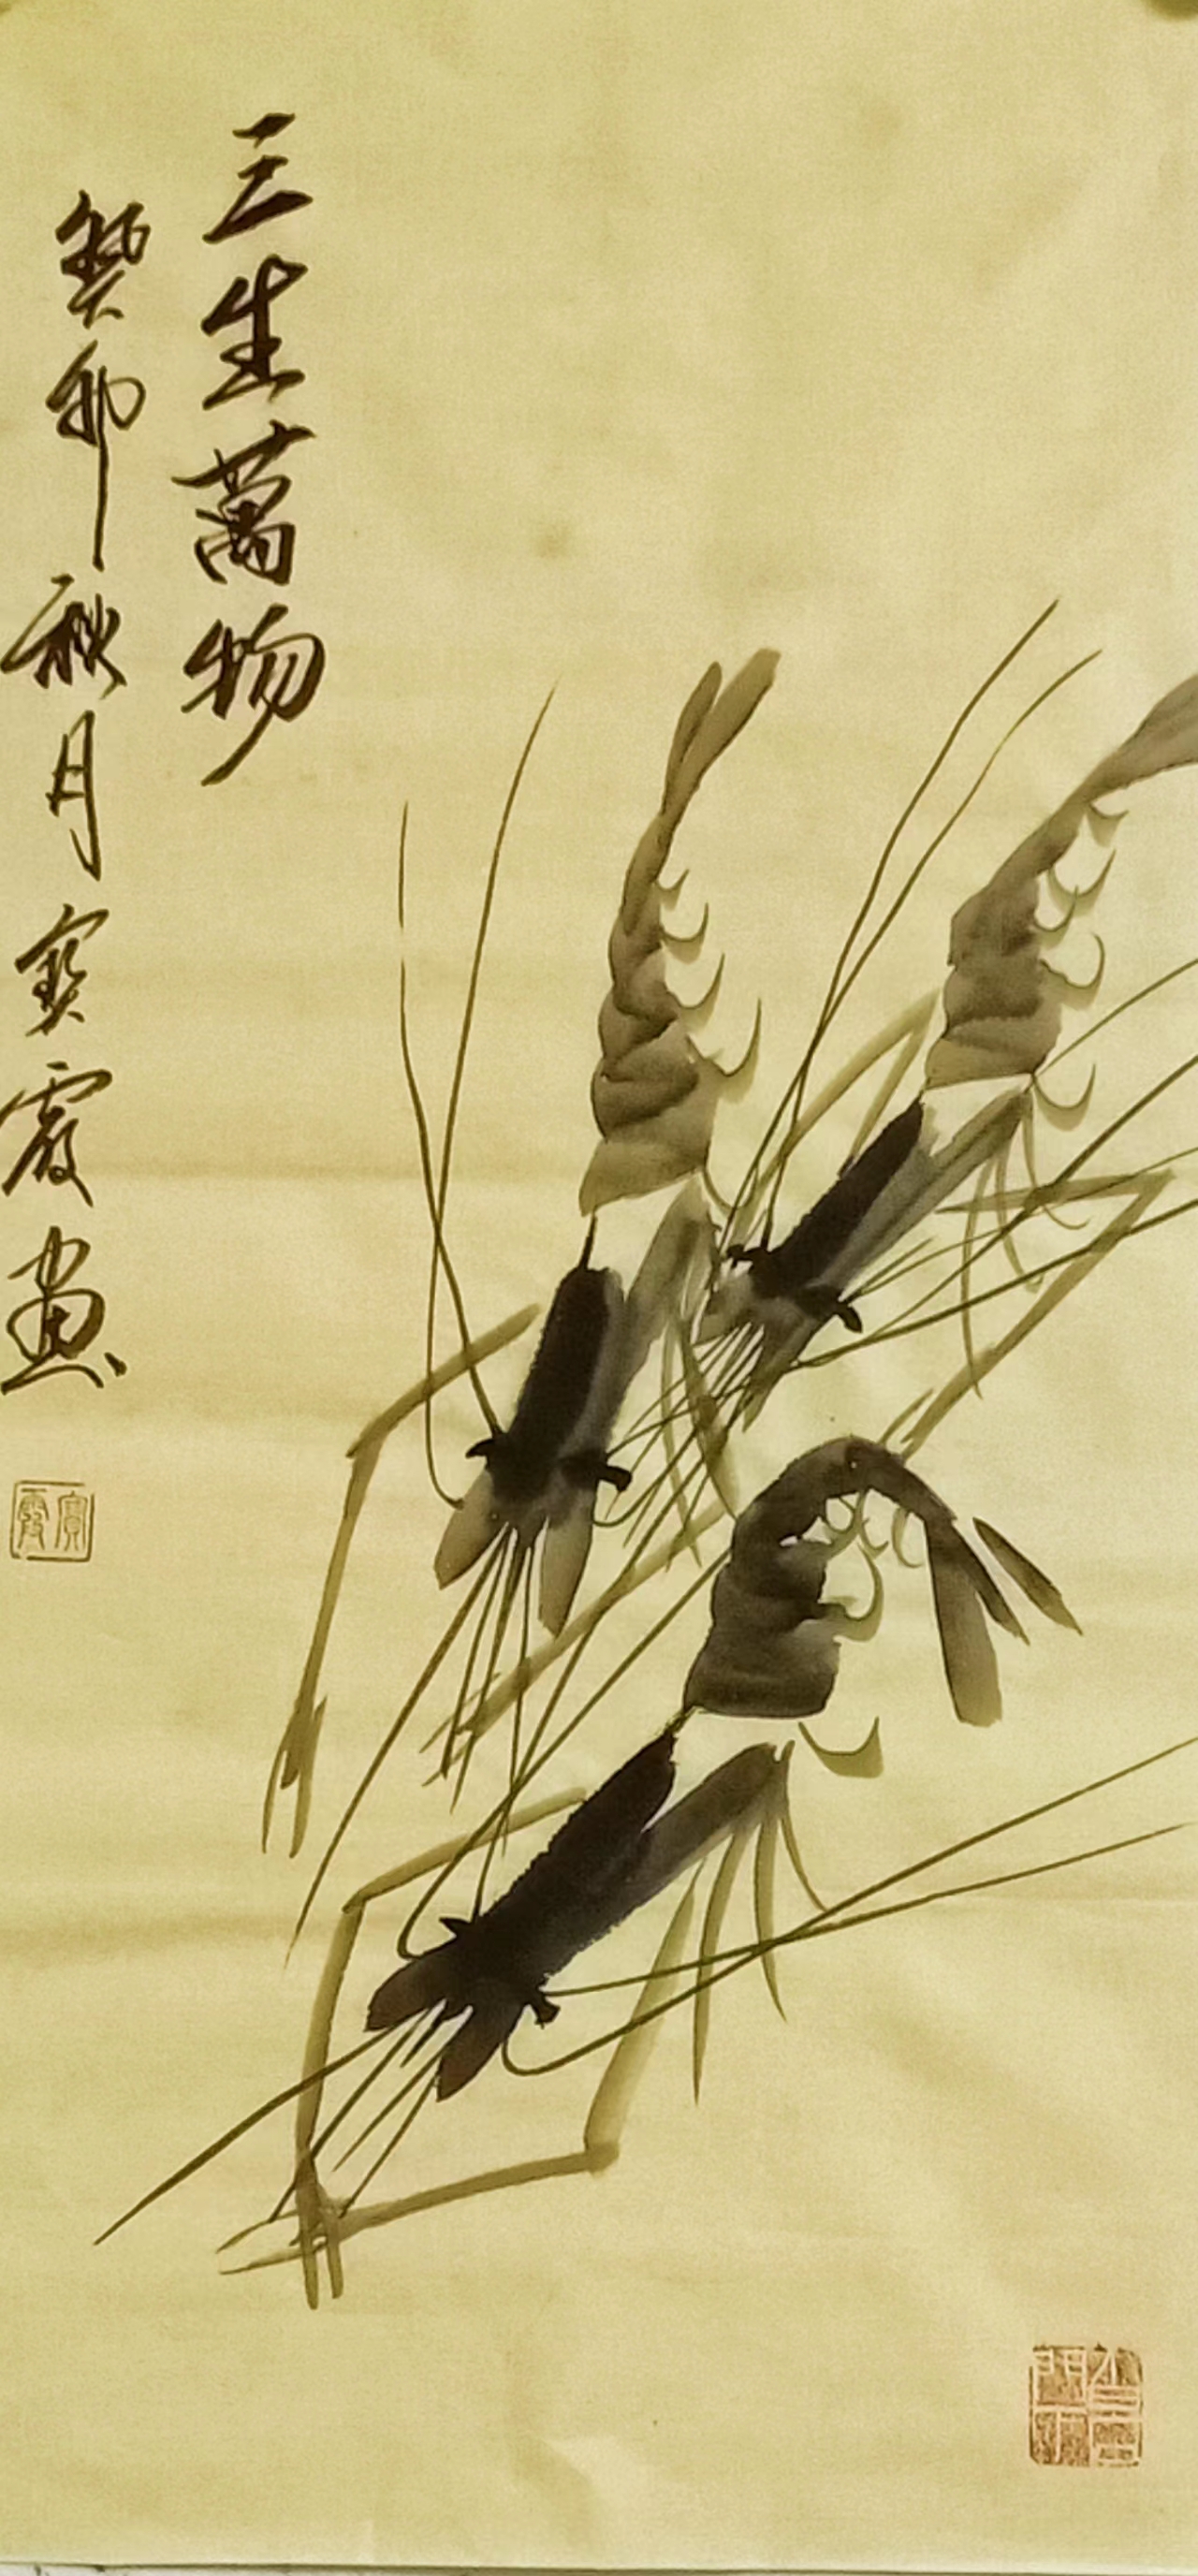 三生萬物
癸卯秋月寶霞畫
寶霞